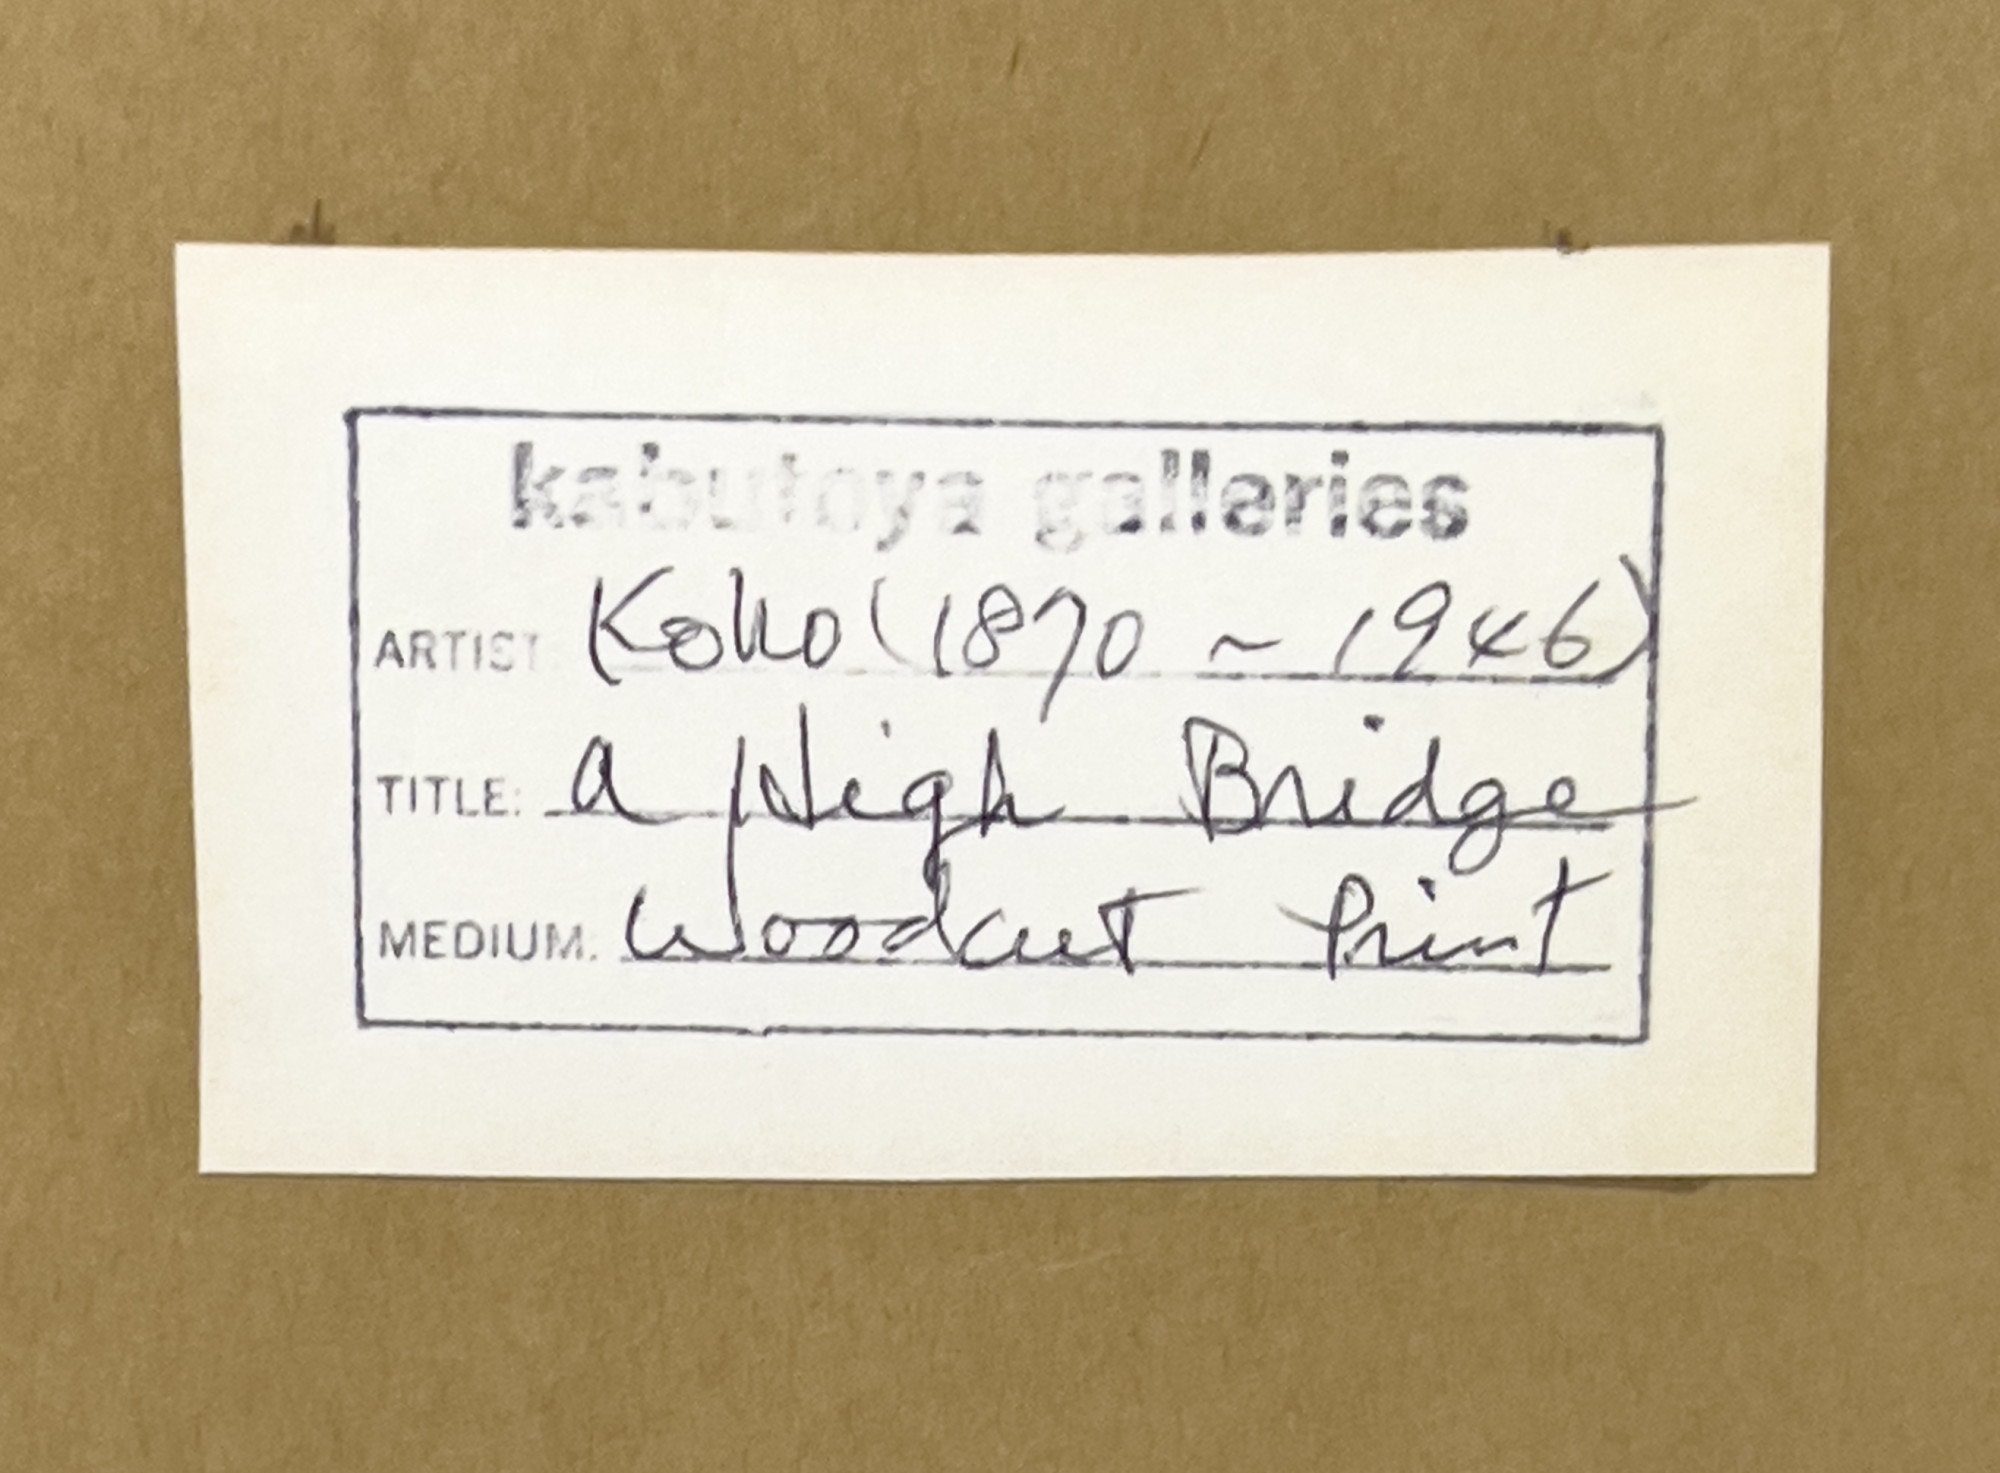 kabutoya galleries
ARTIST: Koho (1870 ~ 1946)
TITLE: a High Bridge
MEDIUM: Woodcut Print